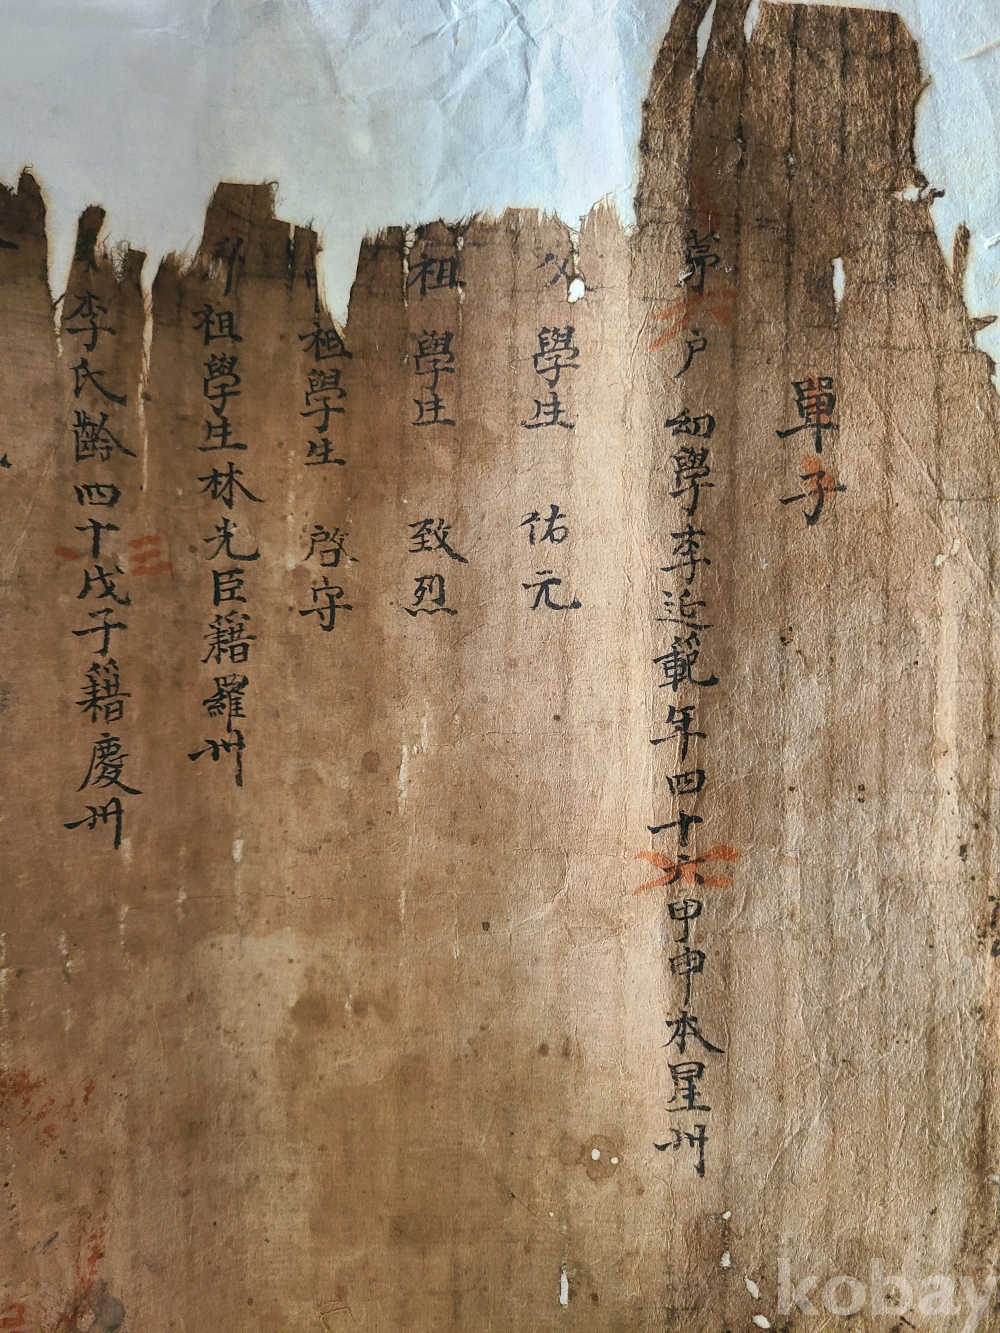 單子
第六戶 幼學李近範年四十六甲申本星州
父學生 佑元
祖學生 致烈
祖學生 啓守
外祖學生林光臣籍羅州
李氏齡四十三戊子籍慶州
kobay